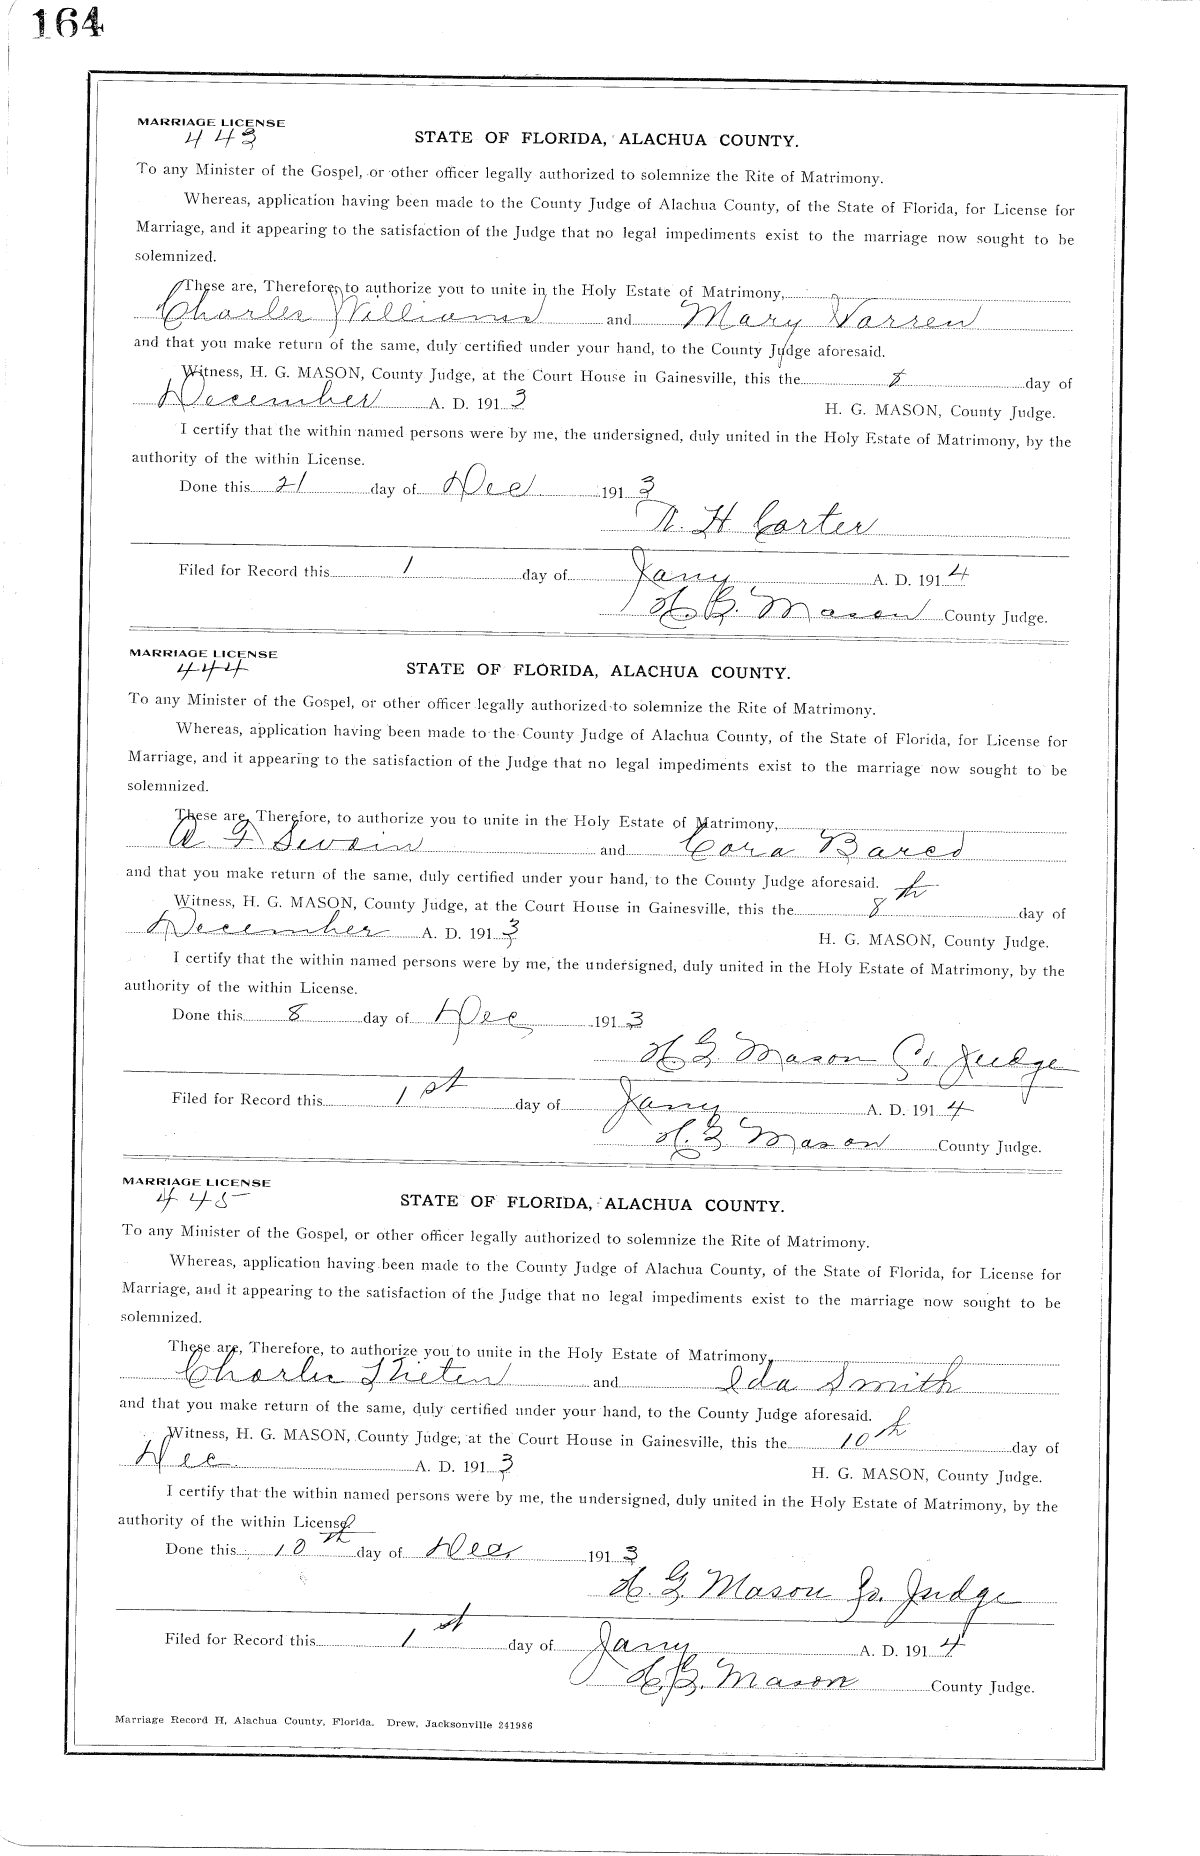 164
MARRIAGE LICENSE
443
STATE OF FLORIDA, ALACHUA COUNTY.
To any Minister of the Gospel, or other officer legally authorized to solemnize the Rite of Matrimony.
Whereas, application having been made to the County Judge of Alachua County, of the State of Florida, for License for
Marriage, and it appearing to the satisfaction of the Judge that no legal impediments exist to the marriage now sought to be
solemnized.
These are, Therefore, to authorize you to unite in the Holy Estate of Matrimony,
Charles Williams and Mary Warren
and that you make return of the same, duly certified under your hand, to the County Judge aforesaid.
Witness, H. G. MASON, County Judge, at the Court House in Gainesville, this the 8 day of
December A. D. 1913 H. G. MASON, County Judge.
I certify that the within named persons were by me, the undersigned, duly united in the Holy Estate of Matrimony, by the
authority of the within License.
Done this 21 day of Dec 1913
H Carter
Filed for Record this 1 day of Jany A. D. 1914
H. G. Mason County Judge.
MARRIAGE LICENSE
444
STATE OF FLORIDA, ALACHUA COUNTY.
To any Minister of the Gospel, or other officer legally authorized to solemnize the Rite of Matrimony.
Whereas, application having been made to the County Judge of Alachua County, of the State of Florida, for License for
Marriage, and it appearing to the satisfaction of the Judge that no legal impediments exist to the marriage now sought to be
solemnized.
These are, Therefore, to authorize you to unite in the Holy Estate of Matrimony,
A. F Swain and Cora
and that you make return of the same, duly certified under your hand, to the County Judge aforesaid.
Witness, H. G. MASON, County Judge, at the Court House in Gainesville, this the 8th day of
December A. D. 1913 H. G. MASON, County Judge.
I certify that the within named persons were by me, the undersigned, duly united in the Holy Estate of Matrimony, by the
authority of the within License.
Done this 8 day of Dec 1913
H G Mason Co. Judge
Filed for Record this 1st day of Jany A. D. 1914
H. G Mason County Judge.
MARRIAGE LICENSE
445
STATE OF FLORIDA, ALACHUA COUNTY.
To any Minister of the Gospel, or other officer legally authorized to solemnize the Rite of Matrimony.
Whereas, application having been made to the County Judge of Alachua County, of the State of Florida, for License for
Marriage, and it appearing to the satisfaction of the Judge that no legal impediments exist to the marriage now sought to be
solemnized.
These are, Therefore, to authorize you to unite in the Holy Estate of Matrimony,
Charlie and Ida Smith
and that you make return of the same, duly certified under your hand, to the County Judge aforesaid.
Witness, H. G. MASON, County Judge, at the Court House in Gainesville, this the 10th day of
Dec A. D. 1913 H. G. MASON, County Judge.
I certify that the within named persons were by me, the undersigned, duly united in the Holy Estate of Matrimony, by the
authority of the within License.
Done this 10th day of Dec 1913
H. G Mason Co. Judge
Filed for Record this 1st day of Jany A. D. 1914
H. G. Mason County Judge.
Marriage Record H, Alachua County, Florida. Drew, Jacksonville 241986